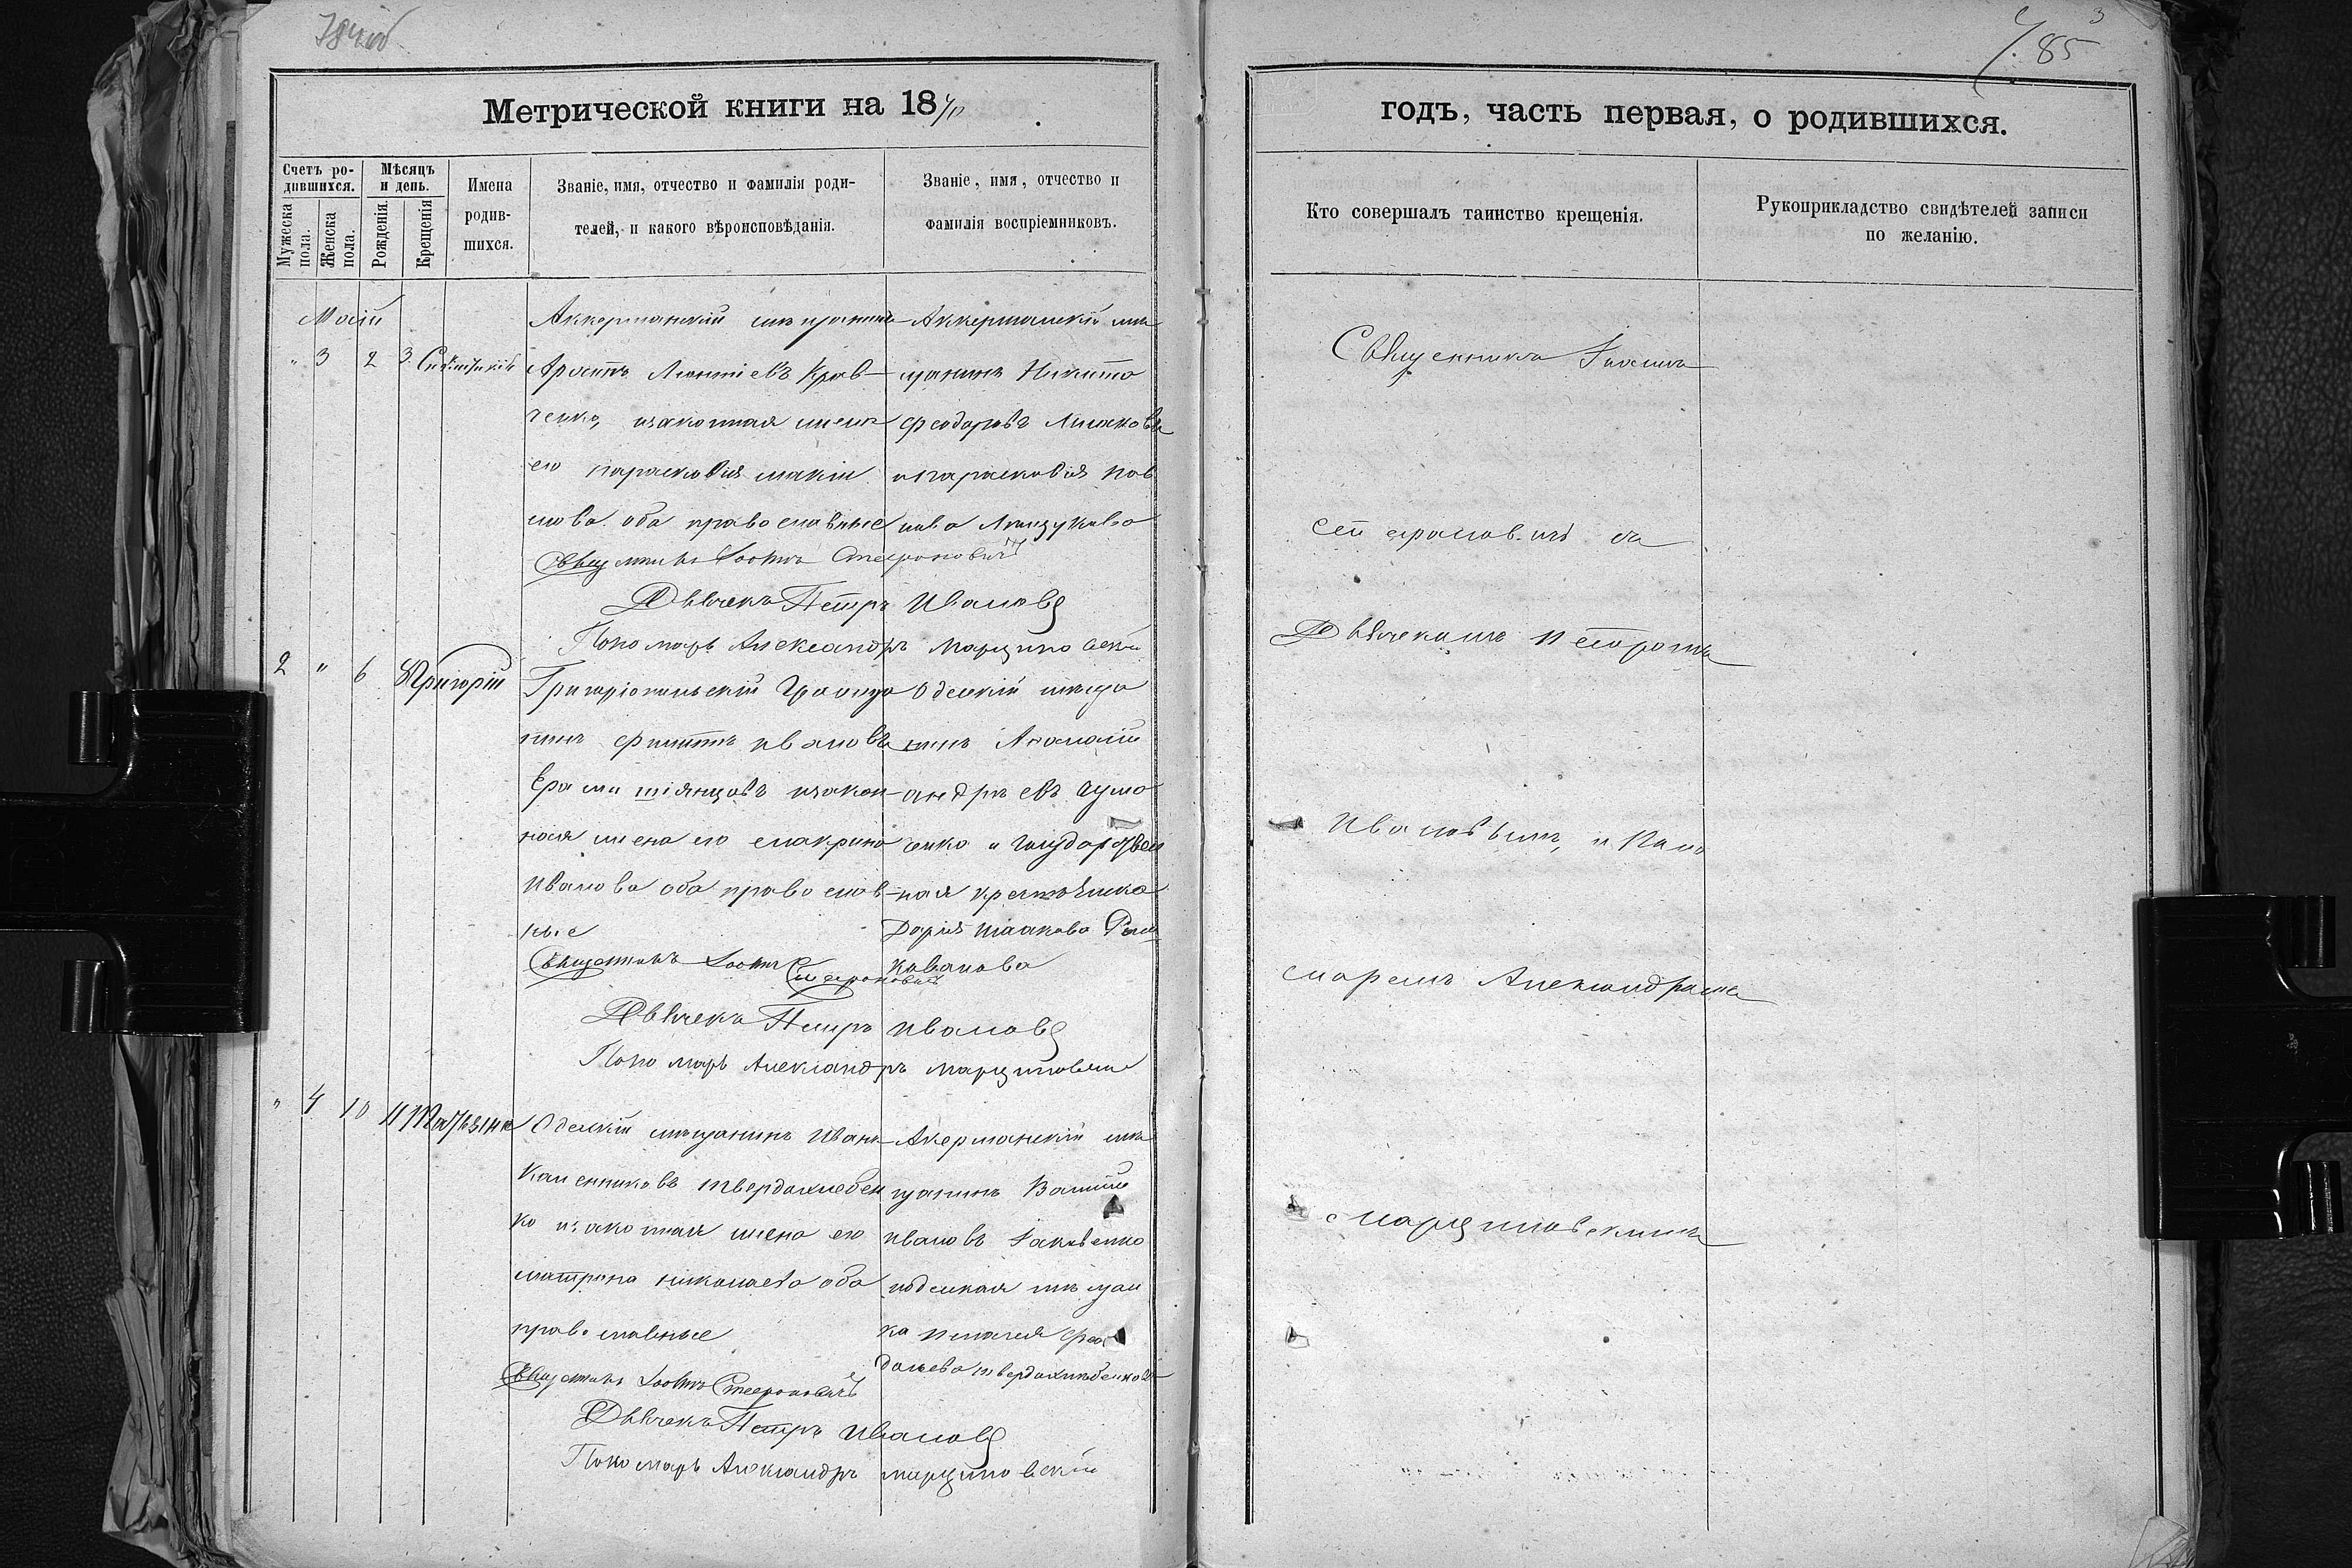 784об
Метрической книги на 1870
Счетъ ро-
дившихся.
Мужеска пола.
Женска пола.
Мѣсяцъ
и день.
Рожденія.
Крещенія
Имена
родив-
шихся.
Званіе, имя, отчество и фамилія роди-
телей, и какого вѣроисповѣданія.
Званіе, имя, отчество и
фамилія воспріемниковъ.
Май
" 3 2 3
Аккерманскій мѣщанинъ
Леонтіевъ Крав-
ченко, изаконная жена
его Парасковія
мова оба православные
Аккерманскій мѣ
щанинъ Никита
Феодоровъ
и Парасковія Пав
лова
Священникъ Іоаннъ Стефановичъ
Дьячекъ Петръ Ивановъ
Пономарь Александръ Марциновскій
2 " 6 8 Григорій
Григоріопольскій Гражда
нинъ Филиппъ Ивановъ
изакон
ная жена его Макрина
Иванова оба православ
ные
Одесскій мѣща
нинъ Афанасій
Андреевъ
енко и Государствен
ная крестьянка
Дарія Исаакова Рома
новова
Священникъ Іоаннъ Стефановичъ
Дьячекъ Петръ Ивановъ
Пономарь Александръ Марциновскій
" 4 10 11 Татьяна
Одесскій мѣщанинъ Иванъ
Каленниковъ Твердохлебен
ко изаконная жена его
Матрона Николаева оба
православные
Акерманскій мѣ
щанинъ Василій
Ивановъ Іаковенко
иодесская мѣщан
ка Пелагея Фео
досьева Твердохлебенкова
Священникъ Іоаннъ Стефановичъ
Дьячекъ Петръ Ивановъ
Пономарь Александръ Марциновскій
3
785
годъ, часть первая, о родившихся.
Кто совершалъ таинство крещенія.
Рукоприкладство свидѣтелей записи
по желанію.
Священникъ Іоаннъ
Стефановичъ съ
Дьячекомъ Петромъ
Ивановымъ, и Поно
маремъ Александромъ
Марциновскимъ